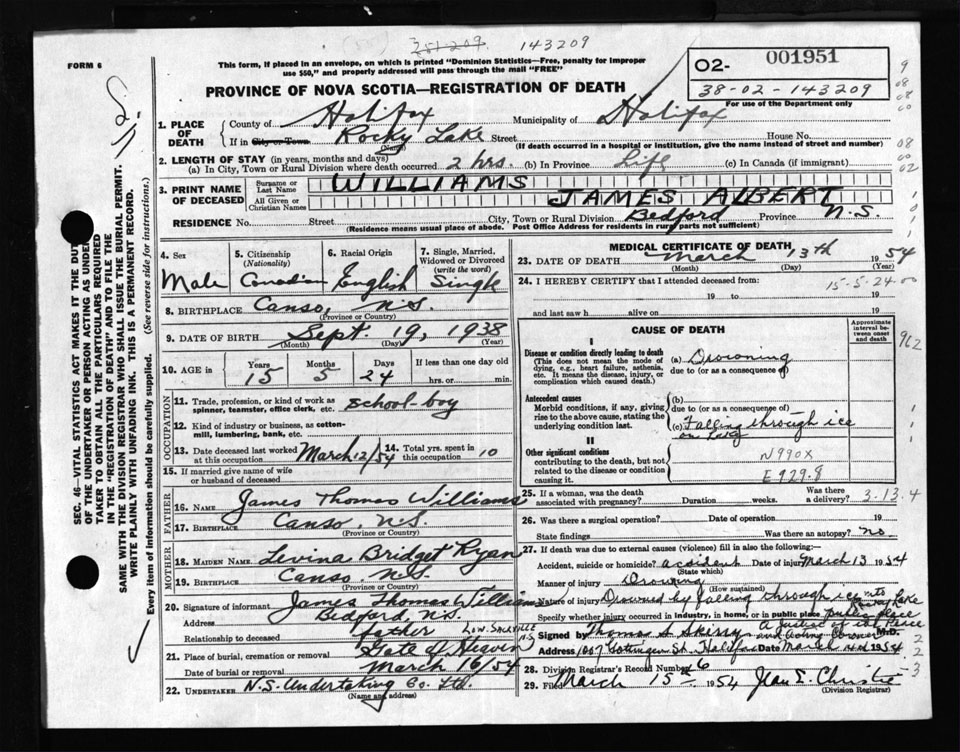 251-209 143209
FORM 6
This form, if placed in an envelope, on which is printed "Dominion Statistics—Free, penalty for improper
use $50," and properly addressed will pass through the mail "FREE"
02- 001951
38-02-143209
For use of the Department only
PROVINCE OF NOVA SCOTIA—REGISTRATION OF DEATH
1. PLACE OF DEATH
County of Halifax Municipality of Halifax
If in City or Town Rocky Lake Street House No.
(Name) (If death occurred in a hospital or institution, give the name instead of street and number)
2. LENGTH OF STAY (in years, months and days)
(a) In City, Town or Rural Division where death occurred 2 hrs. (b) In Province Life (c) In Canada (if immigrant)
3. PRINT NAME OF DECEASED
Surname or Last Name WILLIAMS
All Given or Christian Names JAMES ALBERT
RESIDENCE No. Street City, Town or Rural Division Bedford Province N.S.
(Residence means usual place of abode. Post Office Address for residents in rural parts not sufficient)
SEC. 46—VITAL STATISTICS ACT MAKES IT THE DUTY
OF THE UNDERTAKER OR PERSON ACTING AS UNDER-
TAKER TO OBTAIN ALL THE PARTICULARS REQUIRED
IN THE "REGISTRATION OF DEATH" AND TO FILE THE
SAME WITH THE DIVISION REGISTRAR WHO SHALL ISSUE THE BURIAL PERMIT.
WRITE PLAINLY WITH UNFADING INK. THIS IS A PERMANENT RECORD.
Every item of information should be carefully supplied. (See reverse side for instructions.)
4. Sex Male
5. Citizenship (Nationality) Canadian
6. Racial Origin English
7. Single, Married, Widowed or Divorced (write the word) Single
8. BIRTHPLACE Canso, N.S.
(Province or Country)
9. DATE OF BIRTH Sept. 19, 1938
(Month) (Day) (Year)
10. AGE in Years Months Days If less than one day old
15 5 24 hrs. or min.
OCCUPATION
11. Trade, profession or kind of work as
spinner, teamster, office clerk, etc. school-boy
12. Kind of industry or business, as cotton-
mill, lumbering, bank, etc.
13. Date deceased last worked at this occupation March 12/54
14. Total yrs. spent in this occupation 10
15. If married give name of wife
or husband of deceased
FATHER
16. NAME James Thomas Williams
17. BIRTHPLACE Canso, N.S.
(Province or Country)
MOTHER
18. MAIDEN NAME Levina Bridget Ryan
19. BIRTHPLACE Canso, N.S.
(Province or Country)
20. Signature of informant James Thomas Williams
Address Bedford, N.S.
Relationship to deceased father
21. Place of burial, cremation or removal Gate of Heaven Low. Sackville N.S.
Date of burial or removal March 16/54
22. UNDERTAKER N.S. Undertaking Co. Ltd.
(Name and address)
MEDICAL CERTIFICATE OF DEATH
23. DATE OF DEATH March 13th 1954
(Month) (Day) (Year)
15-5-24-00
24. I HEREBY CERTIFY that I attended deceased from
19 to 19
and last saw h alive on 19
CAUSE OF DEATH
Approximate interval between onset and death
I
Disease or condition directly leading to death
(This does not mean the mode of
dying, e.g., heart failure, asthenia,
etc. It means the disease, injury, or
complication which caused death.)
(a) Drowning
due to (or as a consequence of
Antecedent causes
Morbid conditions, if any, giving
rise to the above cause, stating the
underlying condition last.
(b)
due to (or as consequence of
(c) Falling through ice
on Lake
II
Other significant conditions
contributing to the death, but not
related to the disease or condition
causing it.
N990X
E929.8
962
25. If a woman, was the death
associated with pregnancy? Duration weeks. Was there a delivery? 3-13.4
26. Was there a surgical operation? Date of operation 19
State findings Was there an autopsy? no
27. If death was due to external causes (violence) fill in also the following:—
Accident, suicide or homicide? accident Date of injury March 13 1954
(State which)
Manner of injury Drowning
(How sustained)
Nature of injury Drowned by falling through ice into Rocky Lake
Specify whether injury occurred in industry, in home, or in public place public place
Signed by Thomas A Skerry A Justice of the Peace and Acting Coroner M.D.
Address 1007 Gottingen St. Halifax Date March 14th 1954
28. Division Registrar's Record Number 6
29. Filed March 15th 1954 Jean E. Christie
(Division Registrar)